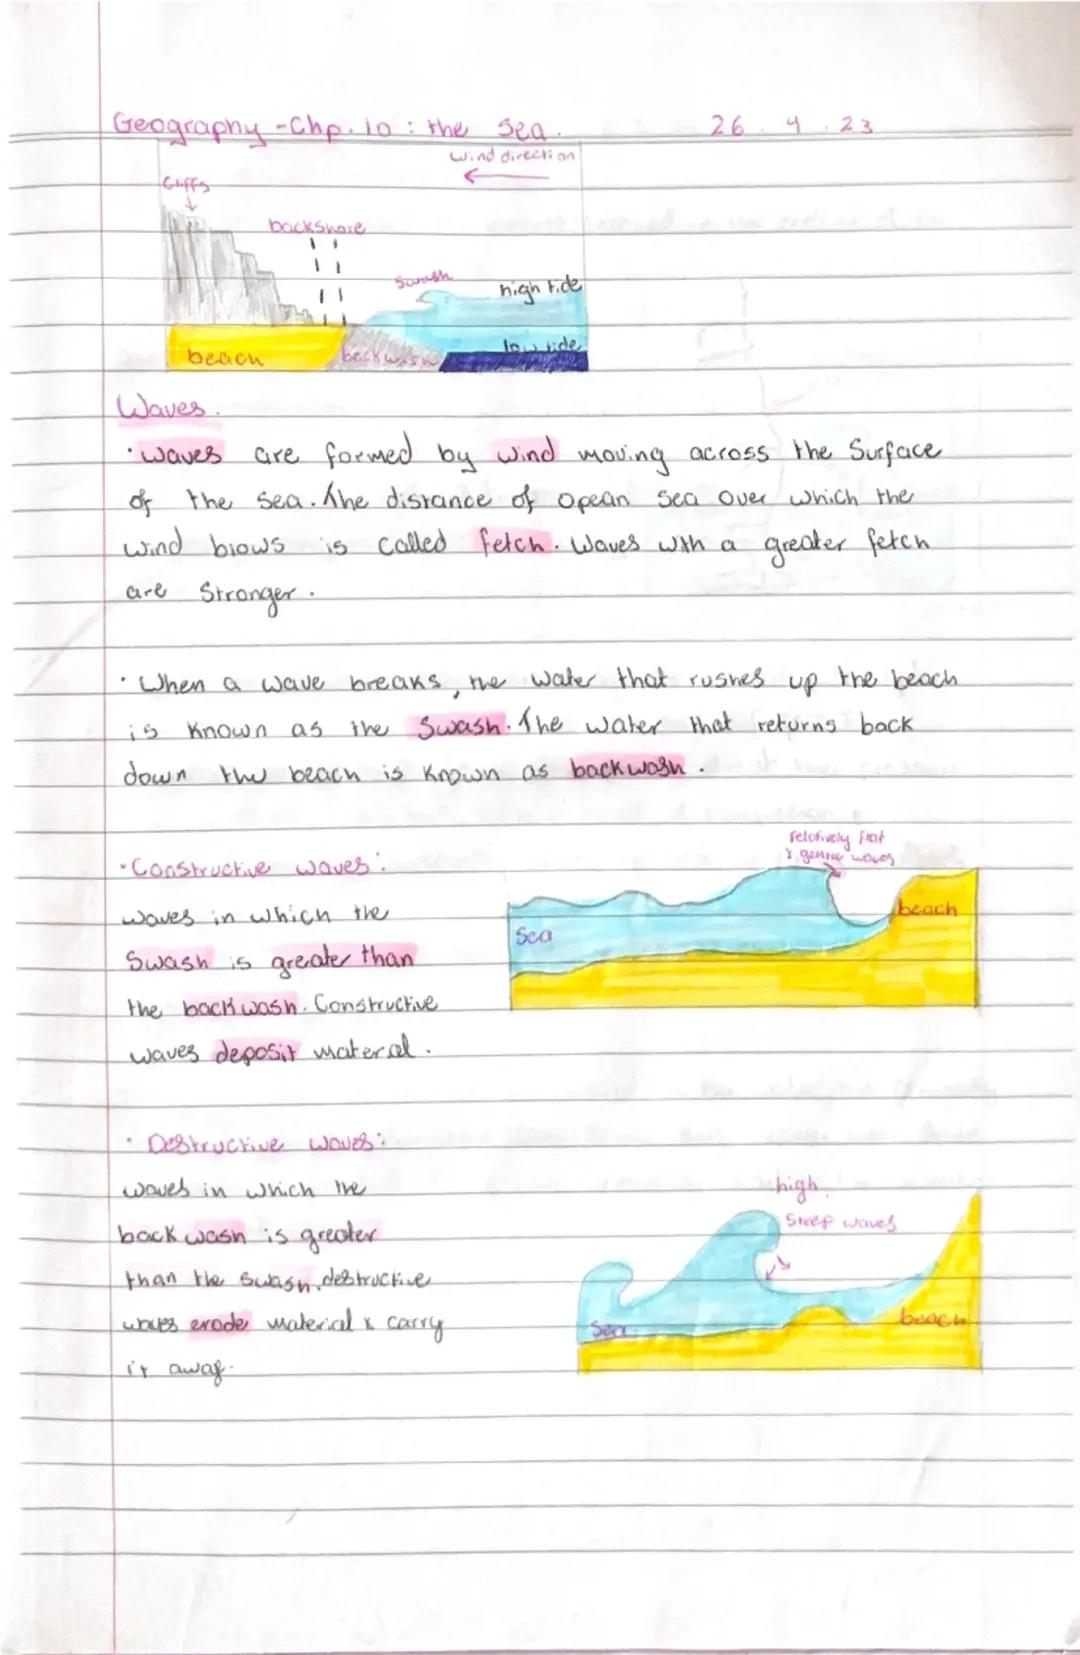 Geography - Chp. 10 : the Sea. 26.4.23
wind direction
Cliffs
backshore
Swash
high tide
low tide
beach
backwash
Waves.
· waves are formed by wind moving across the Surface
of the sea. The distance of opean sea over which the
wind blows is called fetch. Waves with a greater fetch
are Stronger.
· When a wave breaks, the water that rushes up the beach
is known as the Swash. The water that returns back
down the beach is known as backwash.
relatively flat
& gentle waves
· Constructive waves:
waves in which the
Swash is greater than
the backwash. Constructive
waves deposit material.
Sea
beach
· Destructive waves:
waves in which the
backwash is greater
than the swash. destructive
waves erode material & carry
it away.
high
Steep waves
Sea
beach